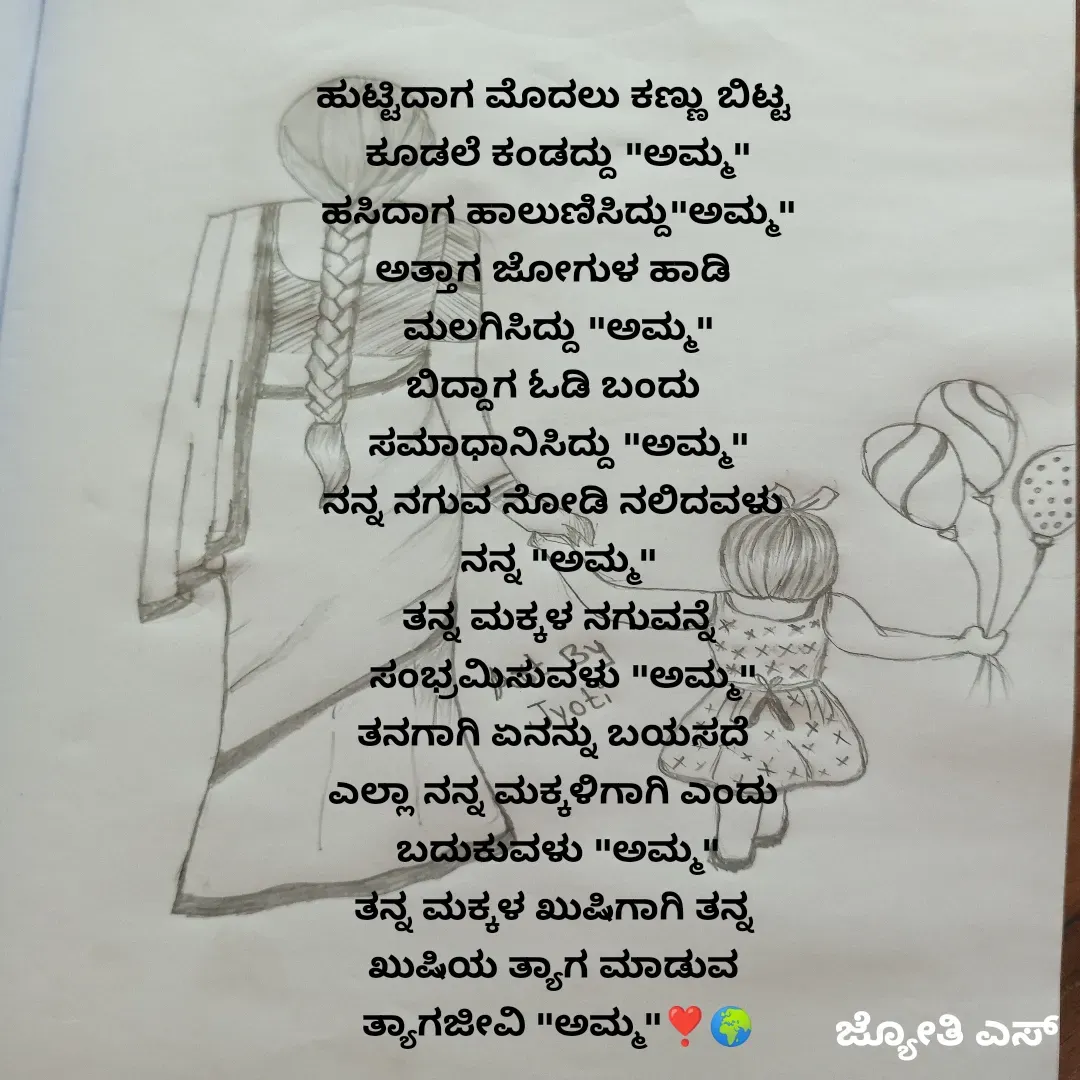 ಹುಟ್ಟಿದಾಗ ಮೊದಲು ಕಣ್ಣು ಬಿಟ್ಟ
ಕೂಡಲೆ ಕಂಡದ್ದು "ಅಮ್ಮ"
ಹಸಿದಾಗ ಹಾಲುಣಿಸಿದ್ದು"ಅಮ್ಮ"
ಅತ್ತಾಗ ಜೋಗುಳ ಹಾಡಿ
ಮಲಗಿಸಿದ್ದು "ಅಮ್ಮ"
ಬಿದ್ದಾಗ ಓಡಿ ಬಂದು
ಸಮಾಧಾನಿಸಿದ್ದು "ಅಮ್ಮ"
ನನ್ನ ನಗುವ ನೋಡಿ ನಲಿದವಳು
ನನ್ನ "ಅಮ್ಮ"
ತನ್ನ ಮಕ್ಕಳ ನಗುವನ್ನೆ
ಸಂಭ್ರಮಿಸುವಳು "ಅಮ್ಮ"
ತನಗಾಗಿ ಏನನ್ನು ಬಯಸದೆ
ಎಲ್ಲಾ ನನ್ನ ಮಕ್ಕಳಿಗಾಗಿ ಎಂದು
ಬದುಕುವಳು "ಅಮ್ಮ"
ತನ್ನ ಮಕ್ಕಳ ಖುಷಿಗಾಗಿ ತನ್ನ
ಖುಷಿಯ ತ್ಯಾಗ ಮಾಡುವ
ತ್ಯಾಗಜೀವಿ "ಅಮ್ಮ"❣️🌍
ಜ್ಯೋತಿ ಎಸ್
By
Jyoti